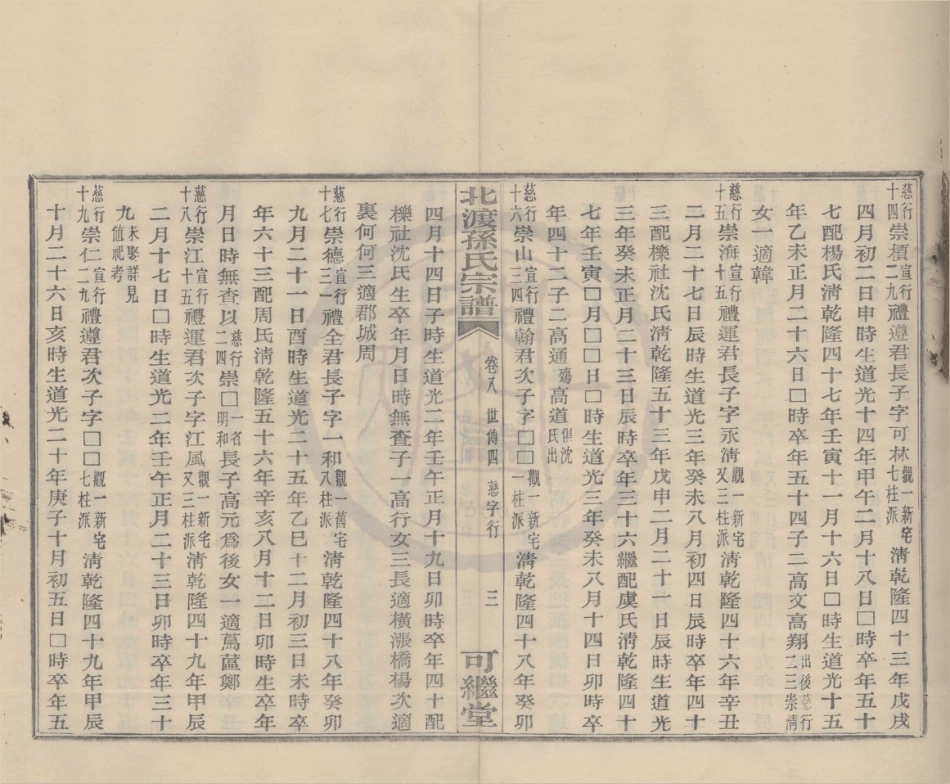 慈行十四崇櫝宣行二九禮遵君長子字可林觀一新宅七柱派清乾隆四十三年戊戌
四月初二日申時生道光十四年甲午二月十八日□時卒年五十
七配楊氏清乾隆四十七年壬寅十一月十六日□時生道光十五
年乙未正月二十六日□時卒年五十四子二高文高翔出後慈行二三崇清
女一適韓
慈行十五崇海宣行十五禮運君長子字永清觀一新宅又三柱派清乾隆四十六年辛丑
二月二十七日辰時生道光三年癸未八月初四日辰時卒年四十
三配櫟社沈氏清乾隆五十三年戊申二月二十一日辰時生道光
三年癸未正月二十三日辰時卒年三十六繼配虞氏清乾隆四十
七年壬寅□月□□日□時生道光三年癸未八月十四日卯時卒
年四十二子二高通殤高道俱沈氏出
慈行十六崇山宣行三四禮翰君次子字□□觀一新宅一柱派清乾隆四十八年癸卯
北渡孫氏宗譜 卷八 世傳四 慈字行 三 可繼堂
四月十四日子時生道光二年壬午正月十九日卯時卒年四十配
櫟社沈氏生卒年月日時無查子一高行女三長適橫漲橋楊次適
裏何何三適郡城周
慈行十七崇德宣行三一禮全君長子字一和觀一舊宅八柱派清乾隆四十八年癸卯
九月二十一日酉時生道光二十五年乙巳十二月初三日未時卒
年六十三配周氏清乾隆五十六年辛亥八月十二日卯時生卒年
月日時無查以慈行二四崇□一名明和長子高元為後女一適蔦蘆鄭
慈行十八崇江宣行十五禮運君次子字江風觀一新宅又三柱派清乾隆四十九年甲辰
二月十七日□時生道光二年壬午正月二十三日卯時卒年三十
九未娶詳見值祀考
慈行十九崇仁宣行二九禮遵君次子字□□觀一新宅七柱派清乾隆四十九年甲辰
十月二十六日亥時生道光二十年庚子十月初五日□時卒年五